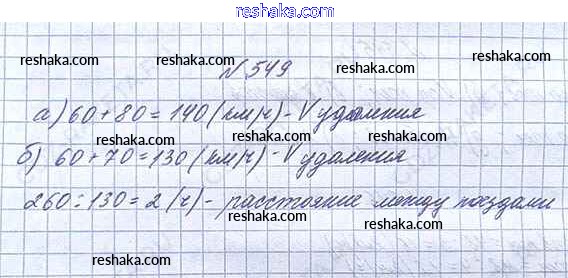 reshaka.com
reshaka.com reshaka.com
№ 549 reshaka.com
reshaka.com
а) 60 + 80 = 140 (км/ч) - V удаления
reshaka.com reshaka.com
б) 60 + 70 = 130 (км/ч) - V удаления
reshaka.com reshaka.com reshaka.com
260 : 130 = 2 (ч) - расстояние между поездами
reshaka.com reshaka.com
reshaka.com